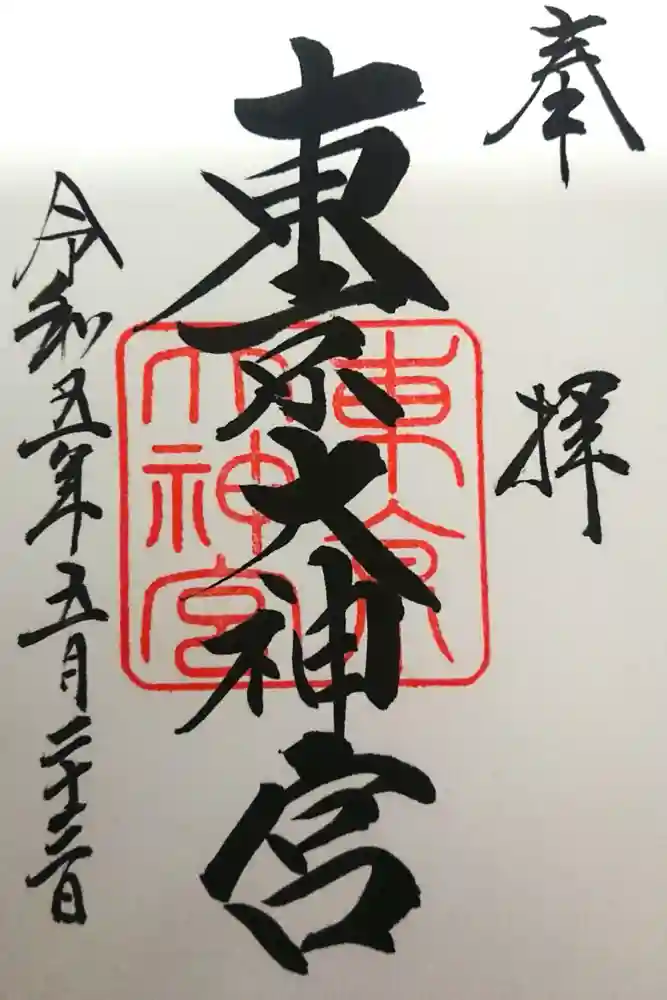 奉拝
東京大神宮
東京
大神宮
令和五年五月二十三日